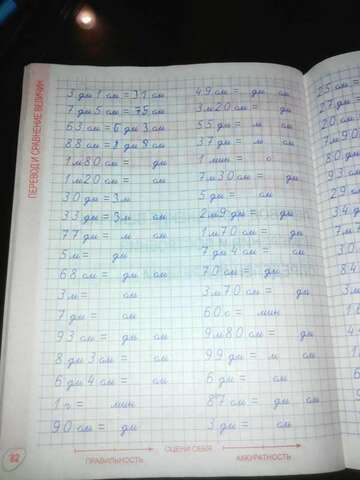 ПЕРЕВОД И СРАВНЕНИЕ ВЕЛИЧИН
3 дм 1 см = 31 см
7 дм 5 см = 75 см
63 см = 6 дм 3 см
88 см = 8 дм 8 см
1 м 80 см = дм
1 м 20 см = см
30 дм = 3 м
33 дм = 3 м см
77 дм = м см
5 м = дм
68 см = дм см
3 м = см
7 дм = см
93 см = дм см
8 дм 3 см = см
6 дм 4 см = см
1 ч = мин
90 см = дм
49 см = дм см
3 м 20 см = дм
55 дм = м см
37 дм = м см
1 мин = с
7 м 30 см = дм
5 дм = см
2 м 9 дм = дм
1 м 70 см = дм
7 дм 4 см = см
70 см = дм
3 м 70 см = дм
60 с = мин
9 м 80 см = дм
99 дм = м см
6 дм = см
87 см = дм см
3 дм = см
25 см
27 дм
20 см
7 м 90
80 дм
93 см
29 см
34 дм
82
ОЦЕНИ СЕБЯ
ПРАВИЛЬНОСТЬ
АККУРАТНОСТЬ